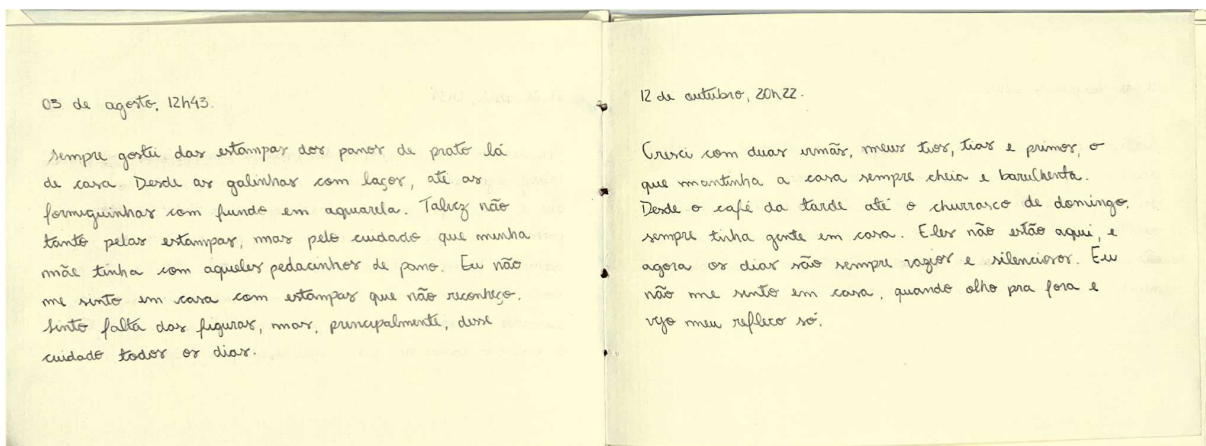 03 de agosto, 12h43.
Sempre gostei das estampas dos panos de prato lá
de casa. Desde as galinhas com laços, até as
formiguinhas com fundo em aquarela. Talvez não
tanto pelas estampas, mas pelo cuidado que minha
mãe tinha com aqueles pedacinhos de pano. Eu não
me sinto em casa com estampas que não reconheço.
Sinto falta das figuras, mas, principalmente, desse
cuidado todos os dias.
12 de outubro, 20h22.
Cresci com duas irmãs, meus tios, tias e primos, o
que mantinha a casa sempre cheia e barulhenta.
Desde o café da tarde até o churrasco de domingo,
sempre tinha gente em casa. Eles não estão aqui, e
agora os dias são sempre vazios e silenciosos. Eu
não me sinto em casa, quando olho pra fora e
vejo meu reflexo só.